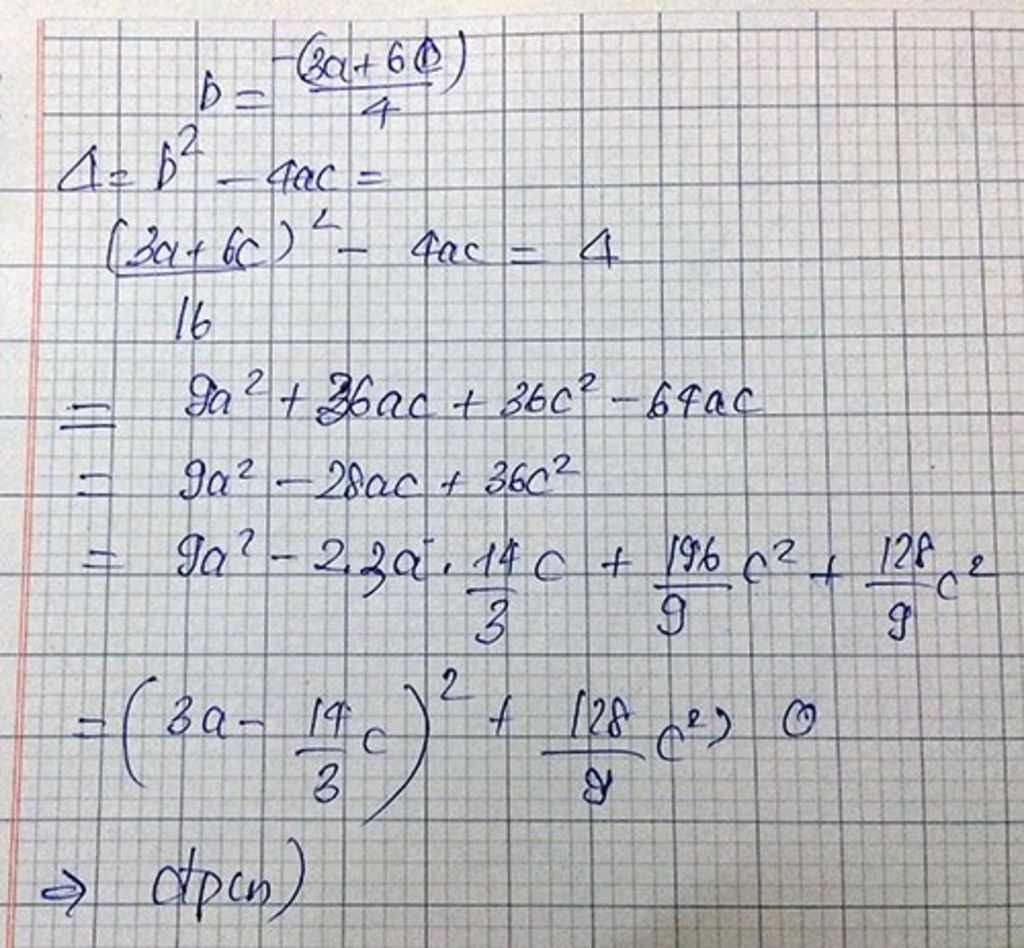 b = -(3a + 6c)/4
Δ = b² - 4ac =
(3a + 6c)²/16 - 4ac = Δ
= 9a² + 36ac + 36c² - 64ac
= 9a² - 28ac + 36c²
= 9a² - 2.3a . 14/3 c + 196/9 c² + 128/9 c²
= (3a - 14/3 c)² + 128/9 c² > 0
⇒ đpcm)